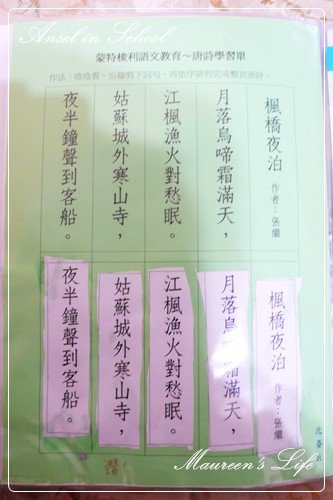 Ansel in School
蒙特梭利語文教育～唐詩學習單
作法：唸唸看，沿線剪下詞句，再依序排列完成整首唐詩。
楓橋夜泊 作者：張繼
月落烏啼霜滿天，
江楓漁火對愁眠。
姑蘇城外寒山寺，
夜半鐘聲到客船。
楓橋夜泊 作者：張繼
月落烏啼霜滿天，
江楓漁火對愁眠。
姑蘇城外寒山寺，
夜半鐘聲到客船。
Maureen's Life